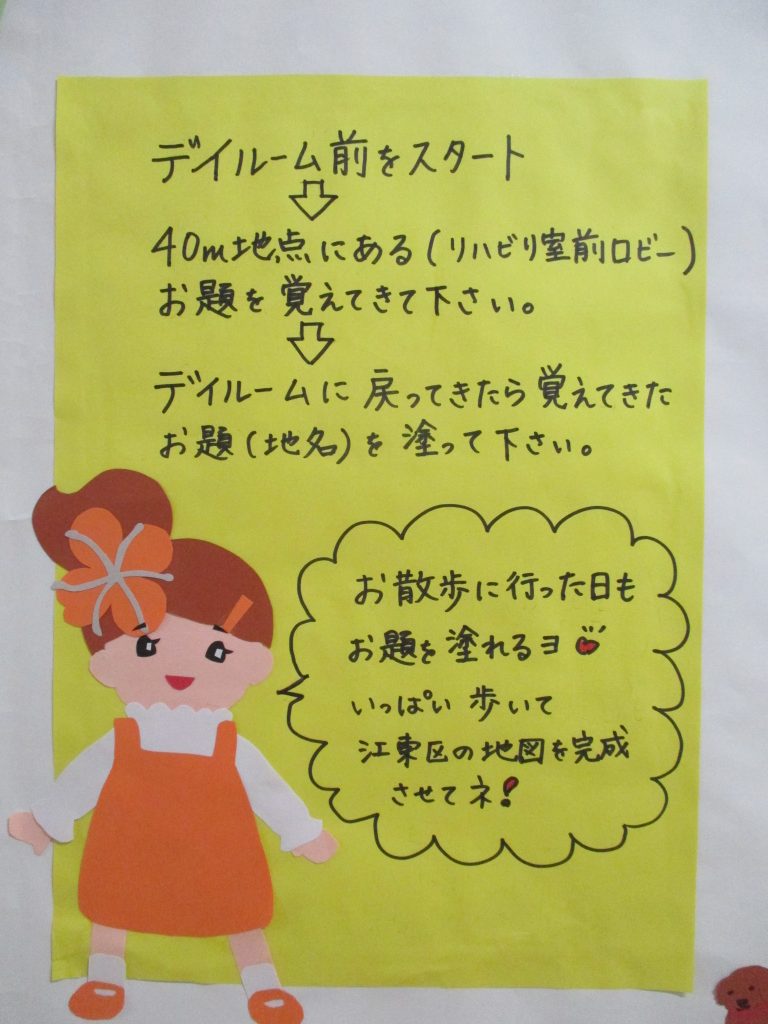 デイルーム前をスタート
40m地点にある(リハビリ室前ロビー)
お題を覚えてきて下さい。
デイルームに戻ってきたら覚えてきた
お題(地名)を塗って下さい。
お散歩に行った日も
お題を塗れるヨ
いっぱい歩いて
江東区の地図を完成
させてネ!